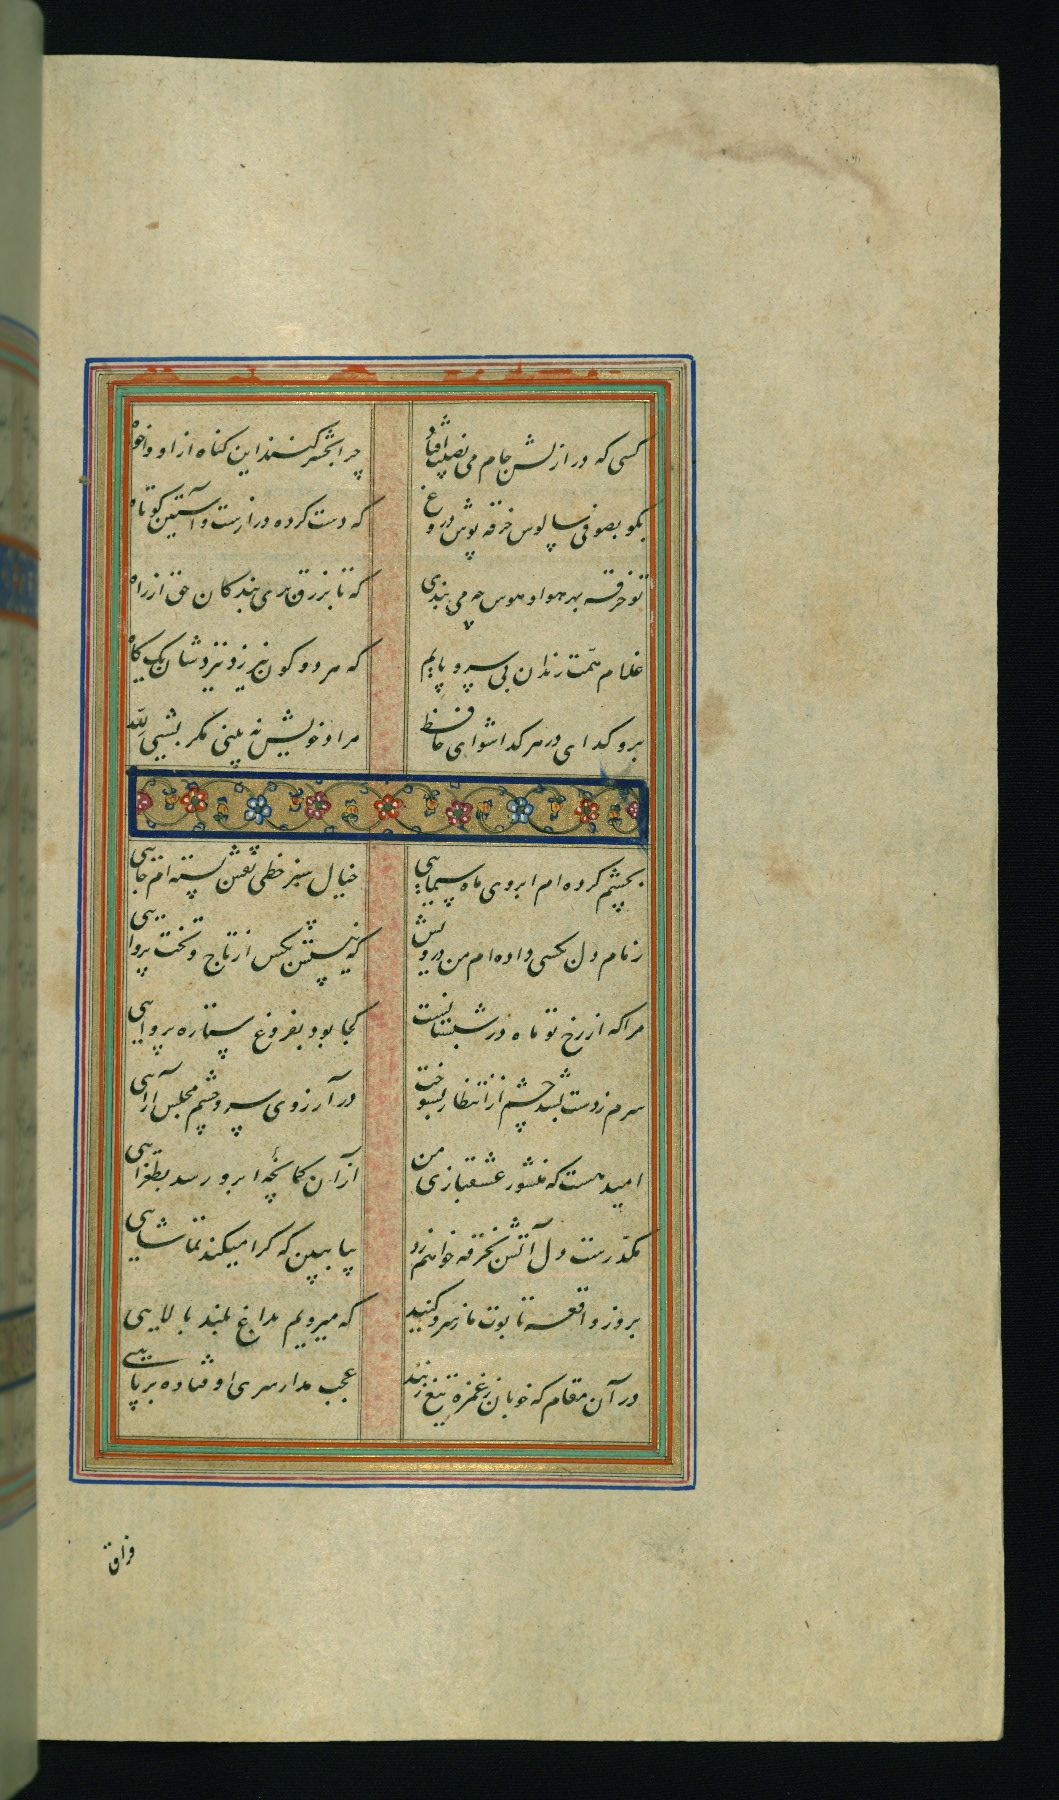 کسی که در ازلش جام می نصیب افتاد چرا بحشر کنند این کناه ازو واخواه
بکو بصوفی سالوس خرقه پوش دو روغ که دست کرده درازست و آستین کوتاه
تو خرقه بهر هوا و هوس چه می بندی که تا بزرق بری بندکان حق از راه
غلام همّت رندان بی سر و پایم که هر دو کون نیرزد نزدشان یک کاه
برو کدای در هر کدا شو ای حافظ مراد خویش نه بینی مکر بشیئی لله
بچشم کرده ام ابروی ماه سیمایی خیال سبز خطی نقش بسته ام جایی
زمام دل بکسی داده ام من درویش که نیستش بکس از تاج و تخت پروایی
مرا که از رخ تو ماه در شبستانست کجا بود بفروغ ستاره پروایی
سرم زدست بشد چشم از انتظار بسوخت در آرزوی سر و چشم مجلس آرایی
امید هست که منشور عشقبازی من از آن کمانچهٔ ابرو رسد بطغرایی
مکدّرست دل آتش بخرقه خواهم زد بیا ببین که کرا میکند تماشایی
بروز واقعه تابوت ما زسرو کنید که میرویم بداغ بلند بالایی
در آن مقام که خوبان زغمزه تیغ زنند عجب مدار سری او فتاده بر پایی
فراق